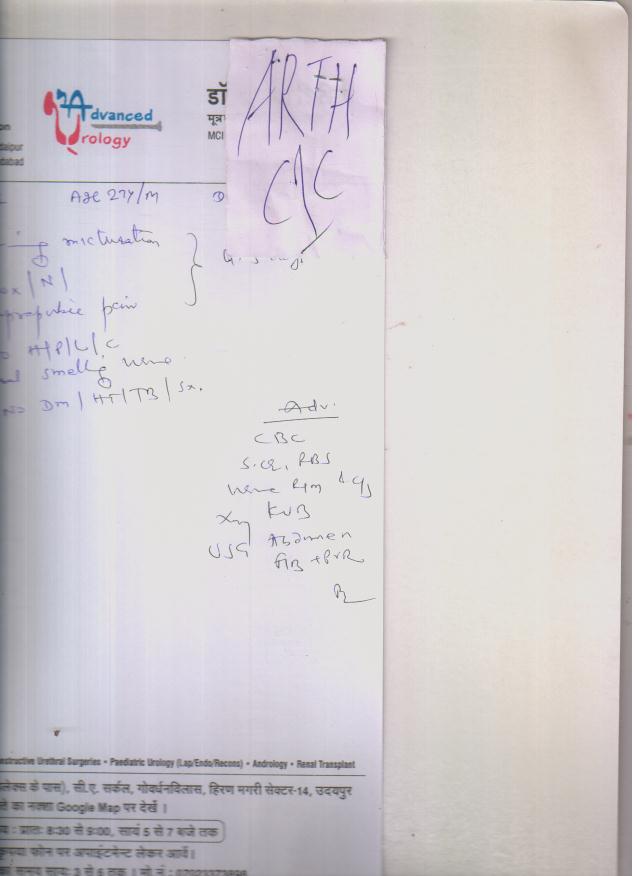 ARTH
C/C
Advanced
Urology
डॉ
मूत्र
MCI
on
daipur
dabad
Age 27Y/M
D
micturation
ox/N/
prapubic pain
H/P/L/C
smelly urine
No DM/HT/TB/Sx.
Adv.
CBC
S.Cr, RBS
urine R/M & C/S
Xray KUB
USG Abdomen
+PVR
nstructive Urethral Surgeries • Paediatric Urology (Lap/Endo/Recons) • Andrology • Renal Transplant
लेक्स के पास), सी.ए. सर्कल, गोवर्धनविलास, हिरण मगरी सेक्टर-14, उदयपुर
ते का नक्शा Google Map पर देखें ।
य : प्रातः 8:30 से 9:00, सायं 5 से 7 बजे तक
कृपया फोन पर अपाइंटमेन्ट लेकर आवें।